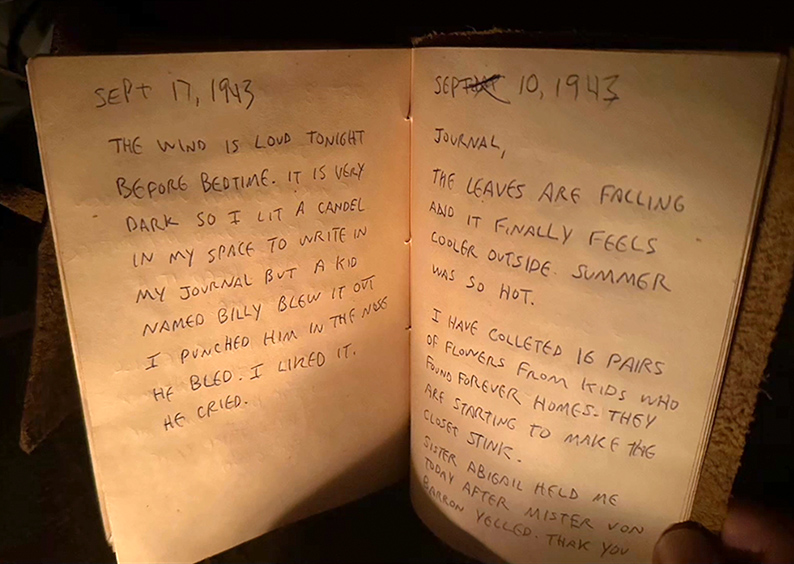 SEPT 17, 1943
THE WIND IS LOUD TONIGHT
BEFORE BEDTIME. IT IS VERY
DARK SO I LIT A CANDEL
IN MY SPACE TO WRITE IN
MY JOURNAL BUT A KID
NAMED BILLY BLEW IT OUT
I PUNCHED HIM IN THE NOSE
HE BLED. I LIKED IT.
HE CRIED.
SEPT 10, 1943
JOURNAL,
THE LEAVES ARE FALLING
AND IT FINALLY FEELS
COOLER OUTSIDE. SUMMER
WAS SO HOT.
I HAVE COLLETED 16 PAIRS
OF FLOWERS FROM KIDS WHO
FOUND FOREVER HOMES. THEY
ARE STARTING TO MAKE THE
CLOSET STINK.
SISTER ABIGAIL HELD ME
TODAY AFTER MISTER VON
BARRON YELLED. THAK YOU